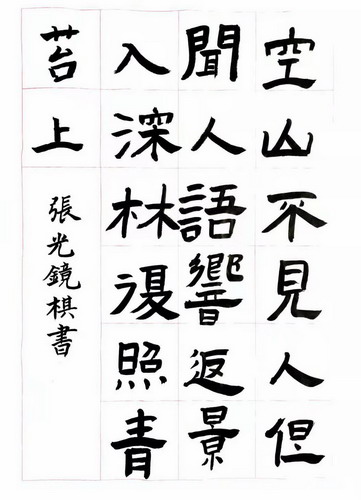 空山不見人但
聞人語響返景
入深林復照青
苔上
張光鏡棋書